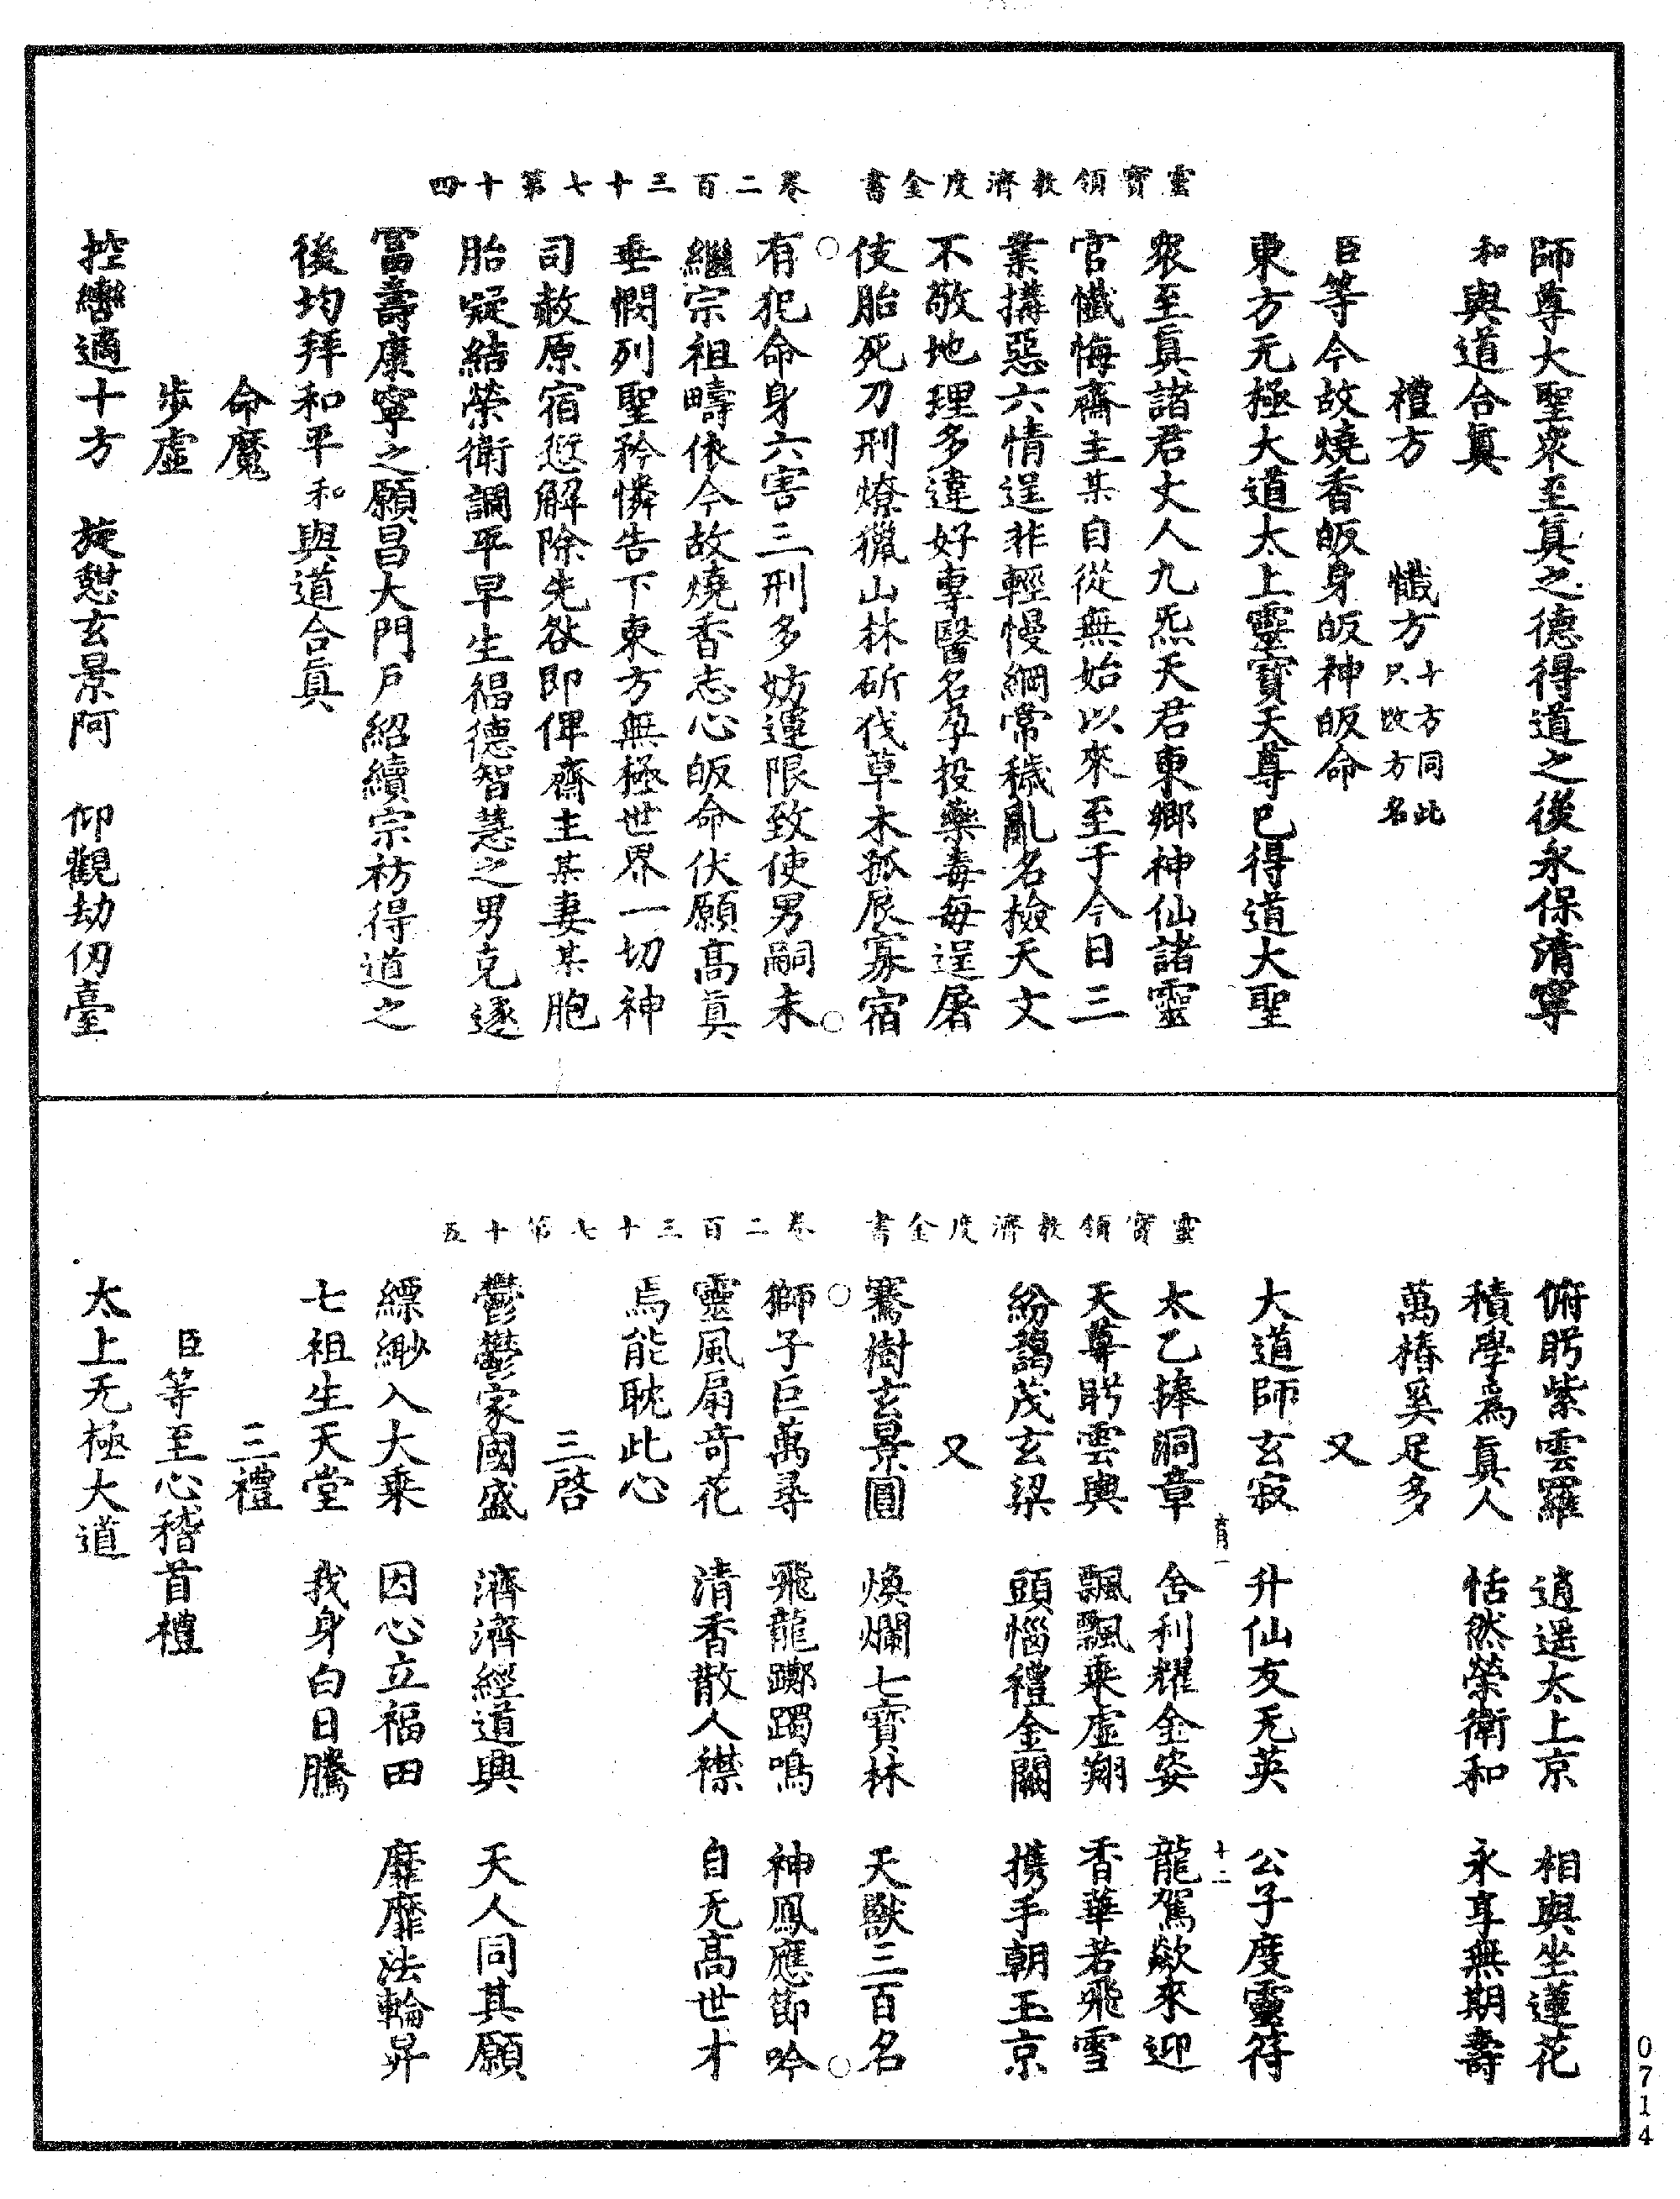 靈寶領教濟度金書　卷二百三十七第十四
師尊大聖眾至眞之德得道之後永保清寧
和與道合眞
禮方　懺方 十方同此只改方名
臣等今故燒香皈身皈神皈命
東方无極大道太上靈寶天尊已得道大聖
眾至眞諸君丈人九炁天君東鄉神仙諸靈
官懺悔齋主某自從無始以來至于今日三
業搆惡六情逞非輕慢綱常穢亂名檢天文
不敬地理多違好事醫名孕投藥毒每逞屠
伎胎死刀刑燎獵山林斫伐草木孤辰寡宿
有犯命身六害三刑多妨運限致使男嗣未
繼宗祖疇依今故燒香志心皈命伏願高眞
垂憫列聖矜憐告下東方無極世界一切神
司赦原宿愆解除先咎即俾齋主某妻某胞
胎凝結榮衛調平早生福德智慧之男克遂
富壽康寧之願昌大門戶紹續宗枋得道之
後均拜和平和與道合眞
命魔
步虛
控轡適十方　旋憩玄景阿　仰觀劫仞臺
靈寶領教濟度金書　卷二百三十七第十五
俯眄紫雲羅　逍遥太上京　相與坐蓮花
積學爲眞人　恬然榮衛和　永享無期壽
萬椿奚足多
又
大道師玄寂　升仙友无英　公子度靈符
十二
太乙捧洞章　舍利耀金姿　龍駕欻來迎
天尊眄雲輿　飄飄乘虛翔　香華若飛雪
紛藹茂玄梁　頭惱禮金闕　携手朝玉京
又
騫樹玄景圓　煥爛七寶林　天獸三百名
獅子巨萬尋　飛龍躑躅鳴　神鳳應節吟
靈風扇奇花　清香散人襟　自无高世才
焉能耽此心
三啓
鬱鬱家國盛　濟濟經道興　天人同其願
縹緲入大乘　因心立福田　靡靡法輪昇
七祖生天堂　我身白日騰
三禮
臣等至心稽首禮
太上无極大道
0714